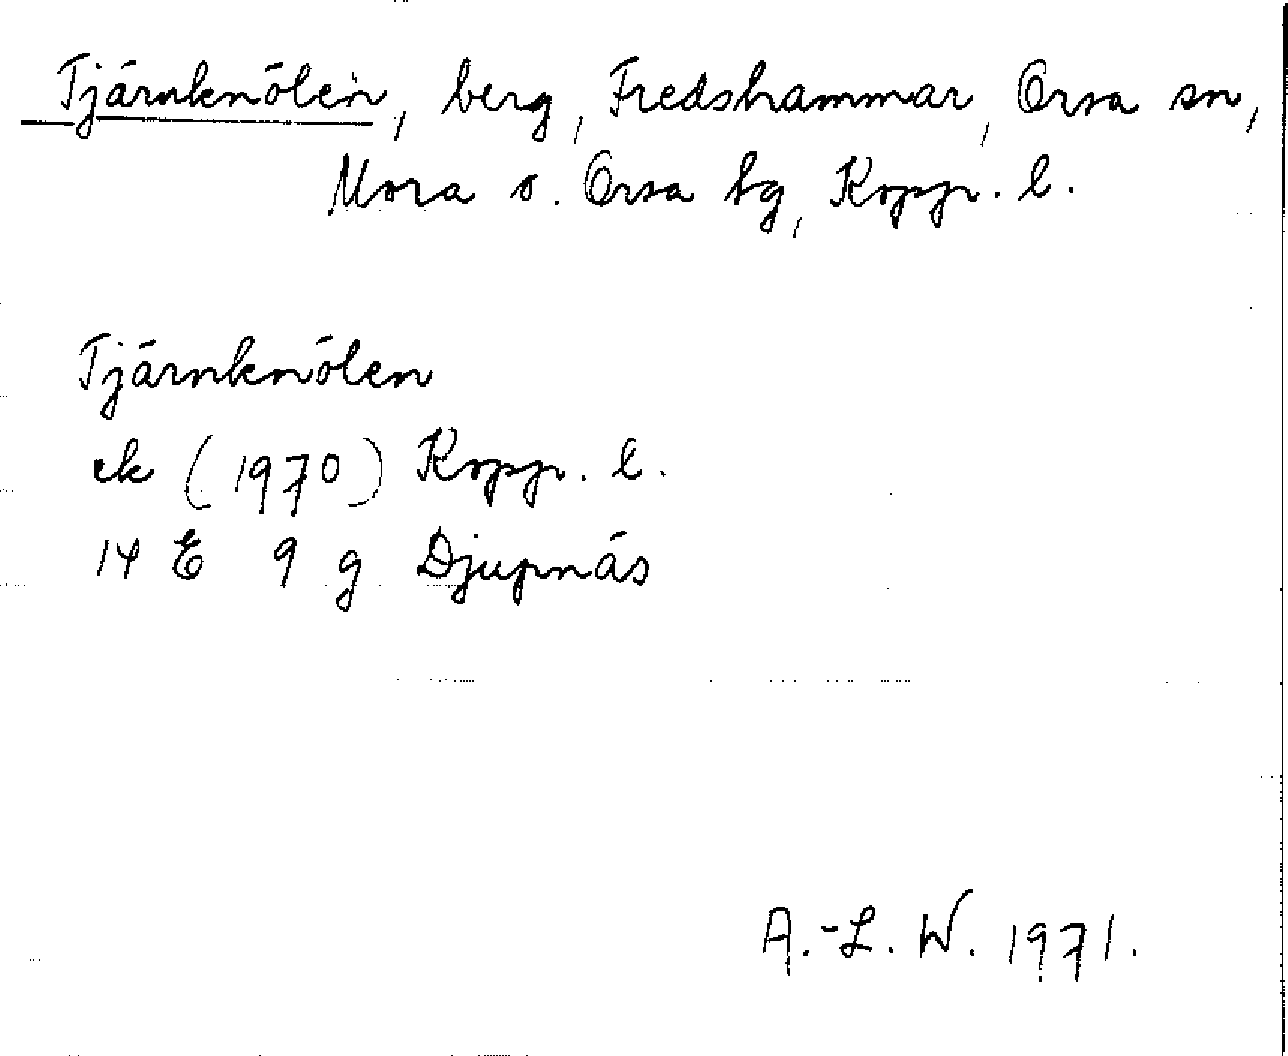 Tjärnknölen, berg, Fredshammar, Orsa sn,
Mora o. Orsa tg, Kopp. l.
Tjärnknölen
ek (1970) Kopp. l.
14 E 9 g Djupnäs
A.-L. W. 1971.